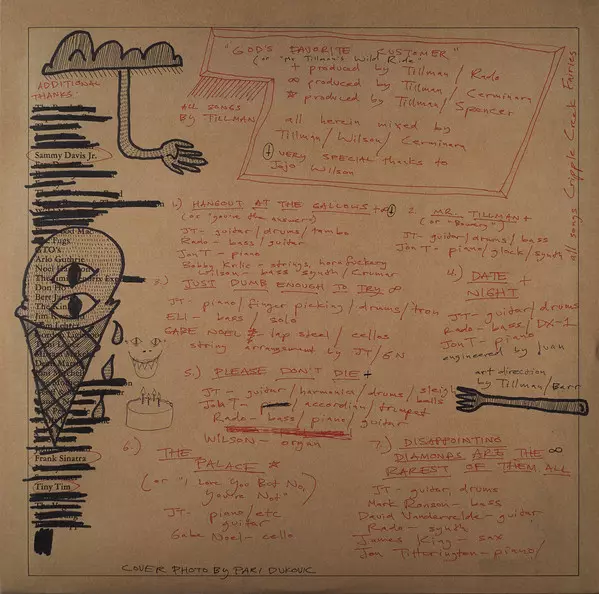 "GOD'S FAVORITE CUSTOMER"
(or "Mr Tillman's Wild Ride"
+ produced by Tillman / Rado
∞ produced by Tillman / Cerminara
* produced by Tillman / Spencer
all herein mixed by
Tillman / Wilson / Cerminara
VERY SPECIAL thanks to
Jojo Wilson
ADDITIONAL
THANKS
ALL SONGS
BY TILLMAN
all songs Cripple Creek Fairies
Sammy Davis Jr.
Arlo Guthrie
Frank Sinatra
Tiny Tim
1.) HANGOUT AT THE GALLOWS +
(or "you're the answer")
JT - guitar / drums / tambo
Rado - bass / guitar
Jon T - piano
Bobby Krlic - strings, horn fuckery
Wilson - bass synth / Crumar
2. MR. TILLMAN +
(or "
JT - guitar / drums / bass
Jon T - piano / glock / synth
3.) JUST DUMB ENOUGH TO TRY ∞
JT - piano / finger picking / drums / tron
ELI - bars / solo
GABE NOEL - lap steel / cellos
string arrangement by JT / GN
4.) DATE +
NIGHT
JT - guitar / drums
Rado - bass / DX-1
Jon T - piano
engineered by Juan
art direction
by Tillman / Barr
5.) PLEASE DON'T DIE +
JT - guitar / harmonica / drums / sleigh
bells
Jon T - accordian / trumpet
Rado - bass / piano / guitar
WILSON - organ
6.) THE
PALACE *
(or "I Love You But No,
You're Not"
JT - piano / etc
guitar
Gabe Noel - cello
7.) DISAPPOINTING
DIAMONDS ARE THE ∞
RAREST OF THEM ALL
JT - guitar, drums
Mark Ronson - bass
David Vandervelde - guitar
Rado - synth
James King - sax
Jon Titterington - piano /
COVER PHOTO BY PARI DUKOVIC